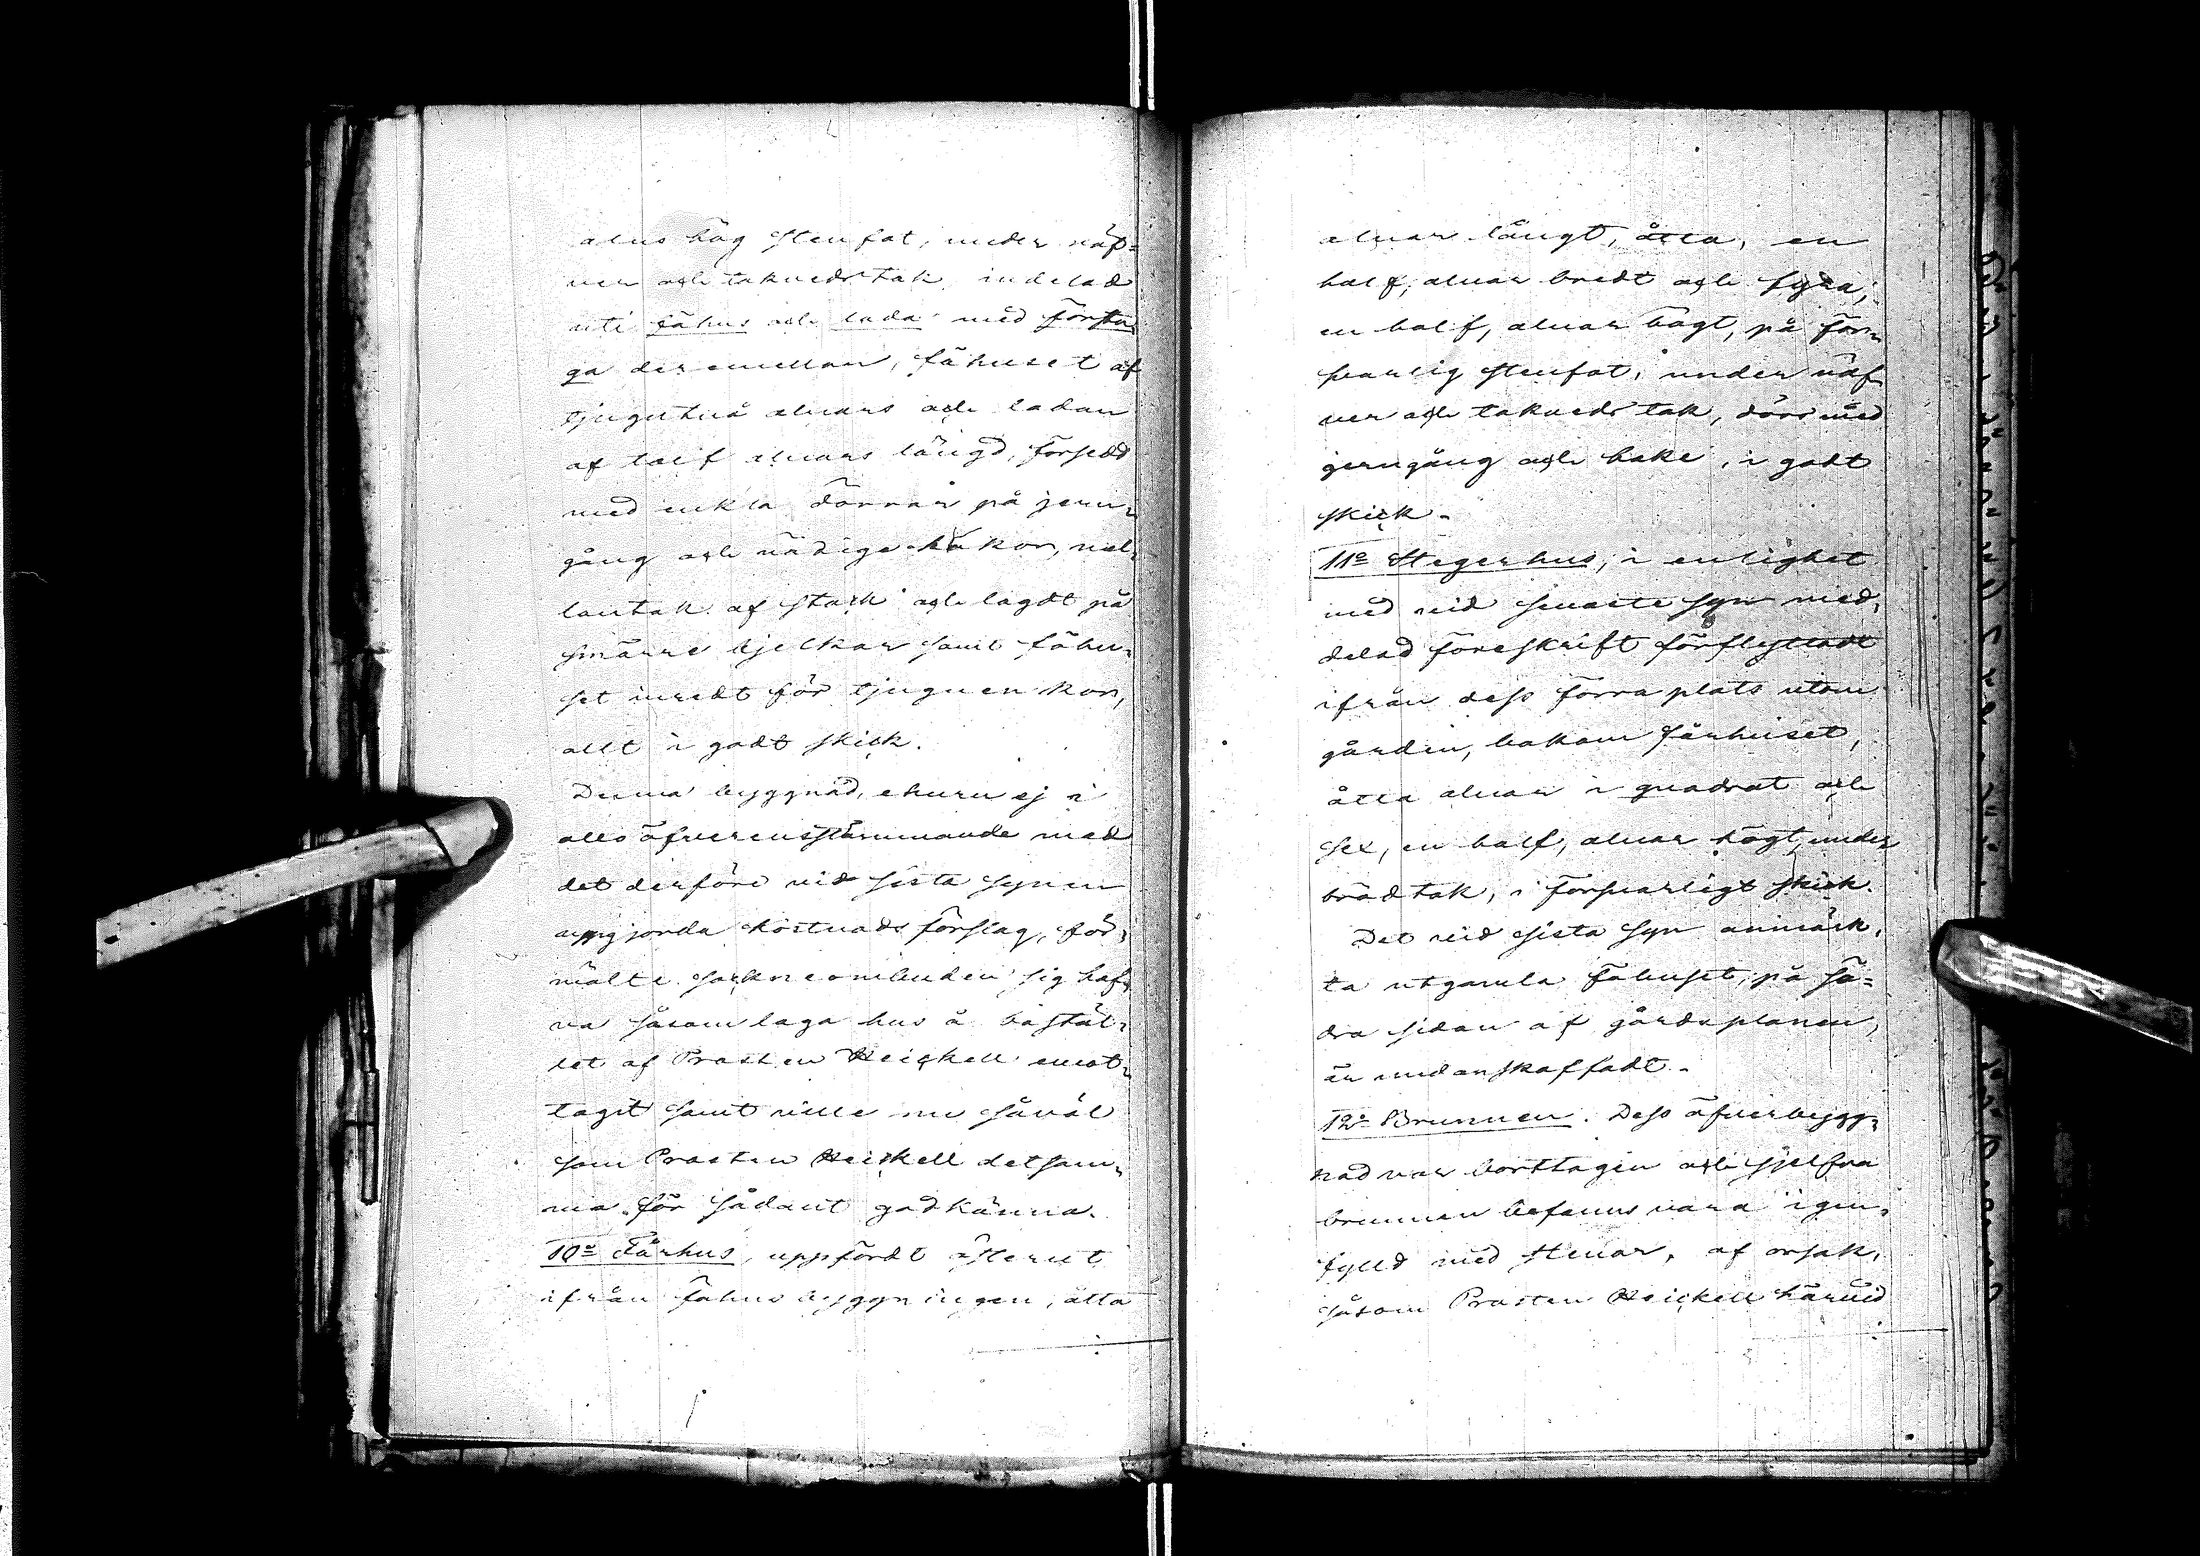 alns hög stenfot, under näf-
ver och takveds tak, indelad
uti fähus och lada med förstu
ga deremellan, fähuset af
tjugutvå alnars och ladan
af tolf alnars längd, försedd
med enkla dörrar på jern-
gång och nödige hakor, mel-
lantak af stock och lagdt på
smärre bjelkar samt fähu-
set inredt för tjuguen kor,
allt i godt skick.
Denna byggnad, ehuru ej i
allo öfverensstämmande med
det derföre vid sista synen
uppgjorda kostnadsförslag, för-
mälte sockneombuden sig haf-
va såsom laga hus å bostäl-
let af Prosten Heickell emot-
tagit samt ville nu såväl
som Prosten Heickell detsam-
ma för sådant godkänna.
10o Fårhus, uppfördt österut
ifrån fähus byggningen, åtta
alnar långt, åtta, en
half, alnar bredt och fyra,
en half, alnar högt, på för-
svarlig stenfot, under näf
ver och takveds tak, dörr med
jerngång och hake, i godt
skick.
11o Stegerhus, i enlighet
med vid senaste syn med-
delad föreskrift förflyttadt
ifrån dess förra plats utom
gården, bakom fårhuset,
åtta alnar i quadrat och
sex, en half, alnar högt, under
brädtak, i försvarligt skick.
Det vid sista syn anmärk-
ta utgamla fähuset, på sö-
dra sidan af gårdsplanen,
är undanskaffadt.
12o Brunnen. Dess öfverbygg-
nad var borttagen och sjelfva
brunnen befanns vara igen-
fylld med stenar, af orsak,
såsom Prosten Heickell härvid